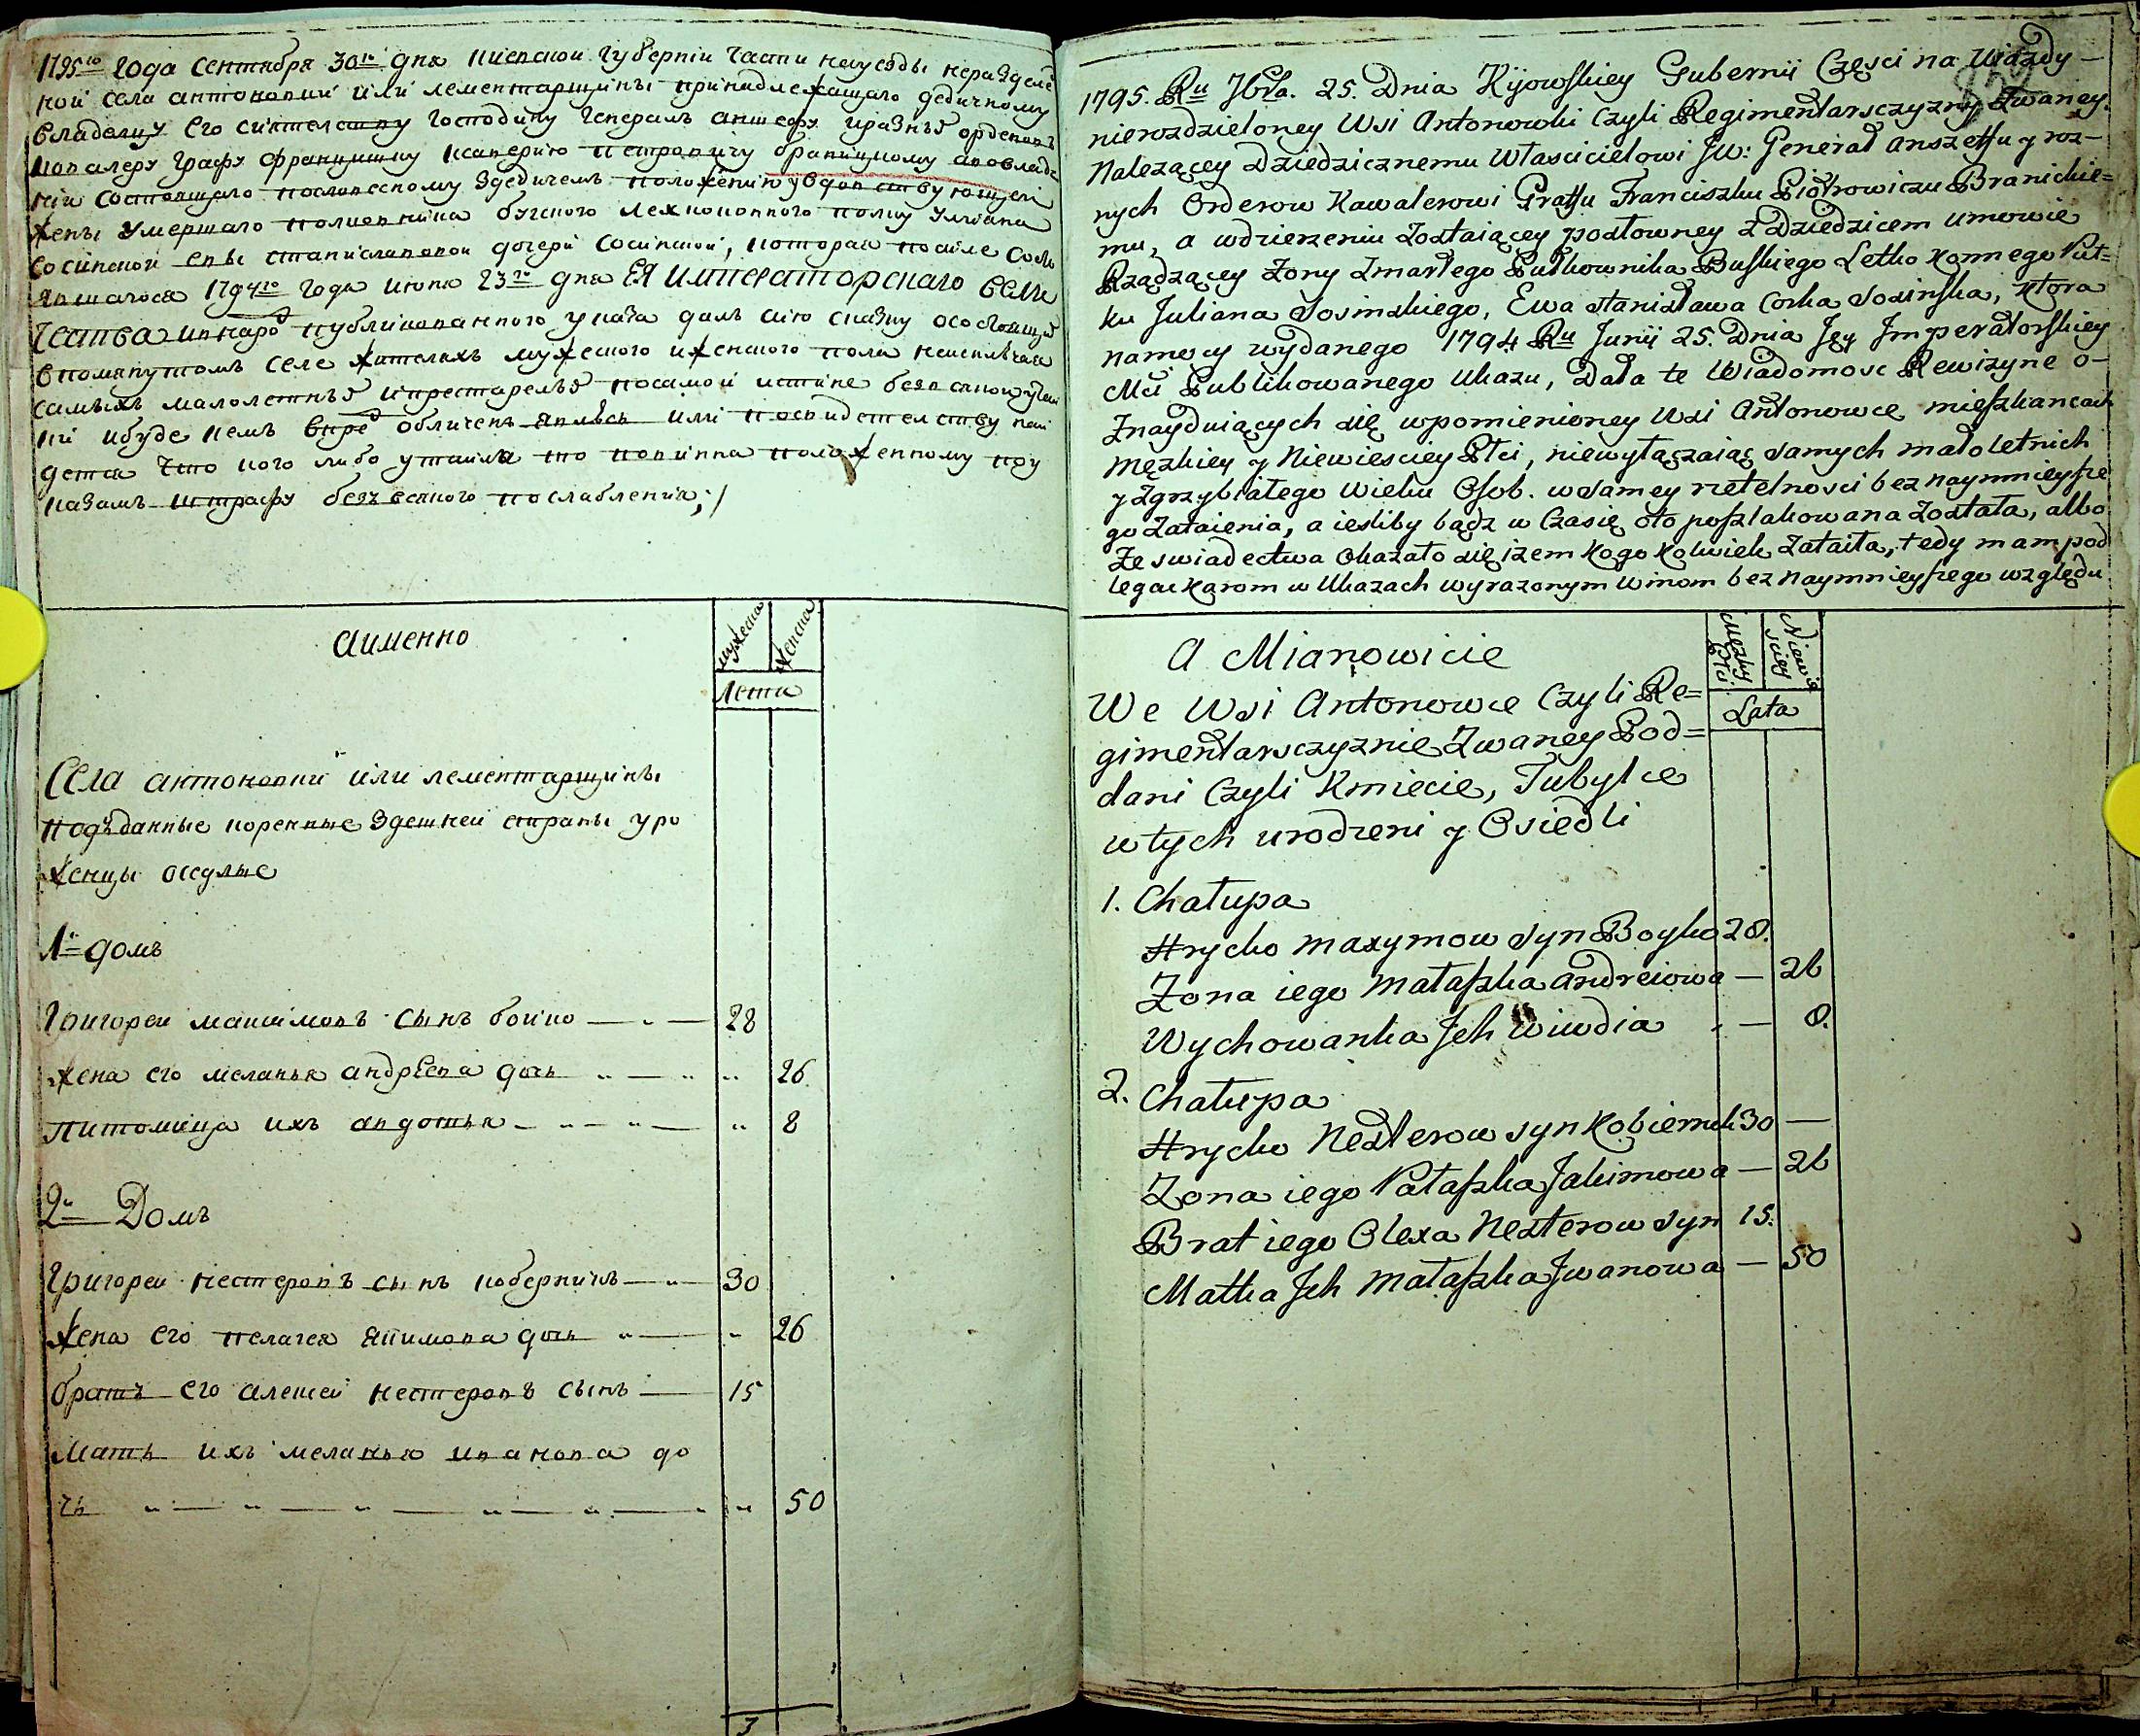 1795го года сентября 30го дня киевской губернiи части науезды неразделе
ной села антоновки или лементарщины принадлежащаго дедичному
владелцу его сиятелству господину генералъ аншефу иразныхъ орденовъ
кавалеру графу францишку ксаверiю петровичу браницкому аповладе
нiю состоящаго пословесному здедичемъ положению увдовствующей
жены умершаго полковника бугского легкоконного полку улияна
сосинской евы станиславовой дочери сосинской, которая посиле состо
явшагося 1794го года июня 23го дня ЕЯ императорскаго вели
чества инаро публикованного указа далъ сию сказку осостоящихъ
впомянутомъ селе жителяхъ мужеского иженского пола неисключая
самыхъ малолетныхъ ипрестарелыхъ посамой истине безовсякойутай
ки ибуде кемъ впре обличенъ явлюсь или посвидетелству най
дется что кого либо утаила то повинна положенному поу
казамъ штрафу безъ всякого послабленiя;/
аименно
мужеска
женска
Лета
Села антоновки или лементарщины
подъданные коренные здешней страны уро
женцы оседлые
1й домъ
Григореи максимовъ сынъ бойко — 28
жена его меланья андреева дочь — „ 26
питомица ихъ авдотья — „ 8
2й Домъ
Григореи нестеровъ сынъ коберникъ — 30
жена его пелагея якимова дочь — „ 26
братъ его алексей нестеровъ сынъ — 15
мать ихъ меланья иванова до
чь „ — „ — „ — „ — „ — „ 50
3
1795. Ru 7bra. 25. Dnia Kijowskiey Gubernii Częsci na Uiazdy
nierozdzieloney Wsi Antonowki Czyli Regimentarsczyzny Zwaney.
Należącey Dziedzicznemu Własicielowi Jw: Generał anszeffu y roz-
nych Orderow Kawalerowi Graffu Franciszku Piotrowiczu Branickie=
mu, a wdzierzeniu Zostaiącey posłowney z Dziedzicem umowie
Rządzącey Zony Zmarłego Pułkownika Buskiego Letko Konnego Puł=
ku Juliana Sosinskiego, Ewa Stanisława Corka Sosinska, ktora
namocy wydanego 1794 Ru Junii 25. Dnia Jey Jmperatorskiey
Mci Publikowanego Ukazu, Dała te Wiadomosc Rewizyne o-
Znayduiących się wpomienioney Wsi Antonowce mieszkancach
Męzkiey y Niewiesciey Płci, niewyłączaiąc samych małoletnich
y Zgrzybiałego Wieku Osob. wsamey rzetelnosci bez naymnieysze
go Zataienia, a iesliby bądz w Czasię oto poszlakowana Została, albo
Ze swiadectwa Okazało się izem kogo kolwiek Zataiła, tedy mam pod
legac karom w Ukazach wyrazonym winom bez naymnieyszego względu
A Mianowicie
Męzkiy Płci
Niewie sciey
Lata
We Wsi Antonowce Czyli Re=
gimentarsczyznie Zwaney Pod=
dani Czyli Kmiecie, Tubylce
w tych urodzeni y Osiedli
1. Chałupa
Hrycko Maxymow syn Boyko 28.
Zona iego Małaszka Andreiowa — 26
Wychowanka Jch Wiwdia — 8.
2. Chałupa
Hrycko Nesterow syn Kobiernik 30 —
Zona iego Pałaszka Jakimowa — 26
Brat iego Olexa Nesterow syn 15.
Matka Jch Małaszka Jwanowa — 50